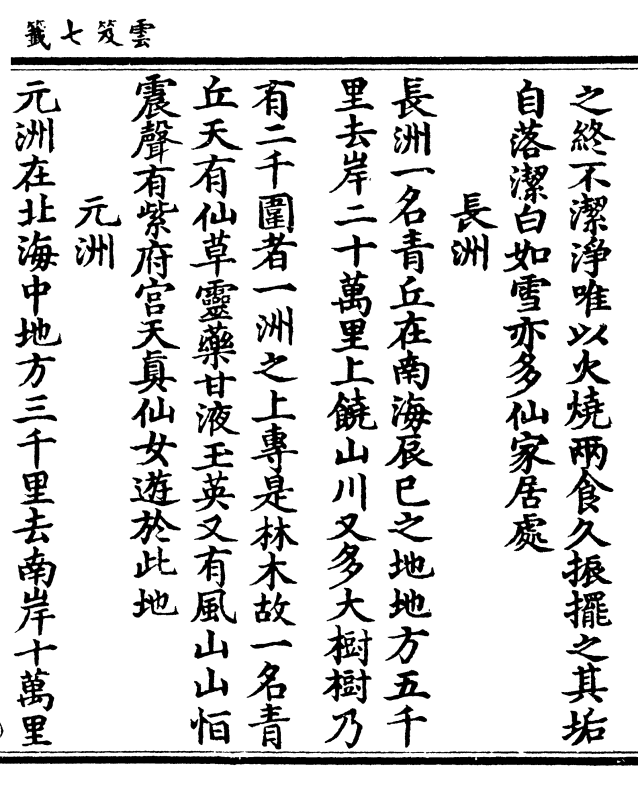 雲笈七籤
之終不潔淨唯以火燒兩食久振擺之其垢
自落潔白如雪亦多仙家居處
長洲
長洲一名青丘在南海辰巳之地地方五千
里去岸二十萬里上饒山川又多大樹樹乃
有二千圍者一洲之上專是林木故一名青
丘天有仙草靈藥甘液玉英又有風山山恒
震聲有紫府宮天真仙女遊於此地
元洲
元洲在北海中地方三千里去南岸十萬里